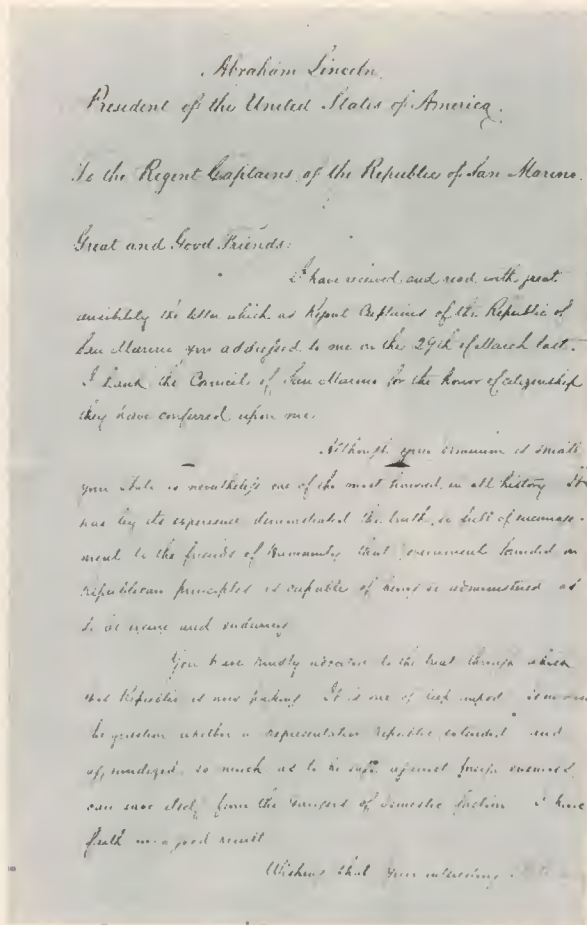 Abraham Lincoln.
President of the United States of America.
To the Regent Captains of the Republic of San Marino.
Great and Good Friends:
I have received and read with great
sensibility the letter which as Regent Captains of the Republic of
San Marino you addressed to me on the 29th of March last.
I thank the Council of San Marino for the honor of citizenship
they have conferred upon me.
Although your dominion is small,
your State is nevertheless one of the most honored, in all history. It
has by its experience demonstrated the truth, so full of encourage-
ment to the friends of Humanity, that Government founded on
republican principles is capable of being so administered as
to be secure and enduring.
You have kindly adverted to the trial through which
this Republic is now passing. It is one of deep import. It involves
the question whether a representative republic, extended and
aggrandized so much as to be safe against foreign enemies
can save itself from the dangers of domestic faction. I have
faith in a good result
Wishing that your interesting